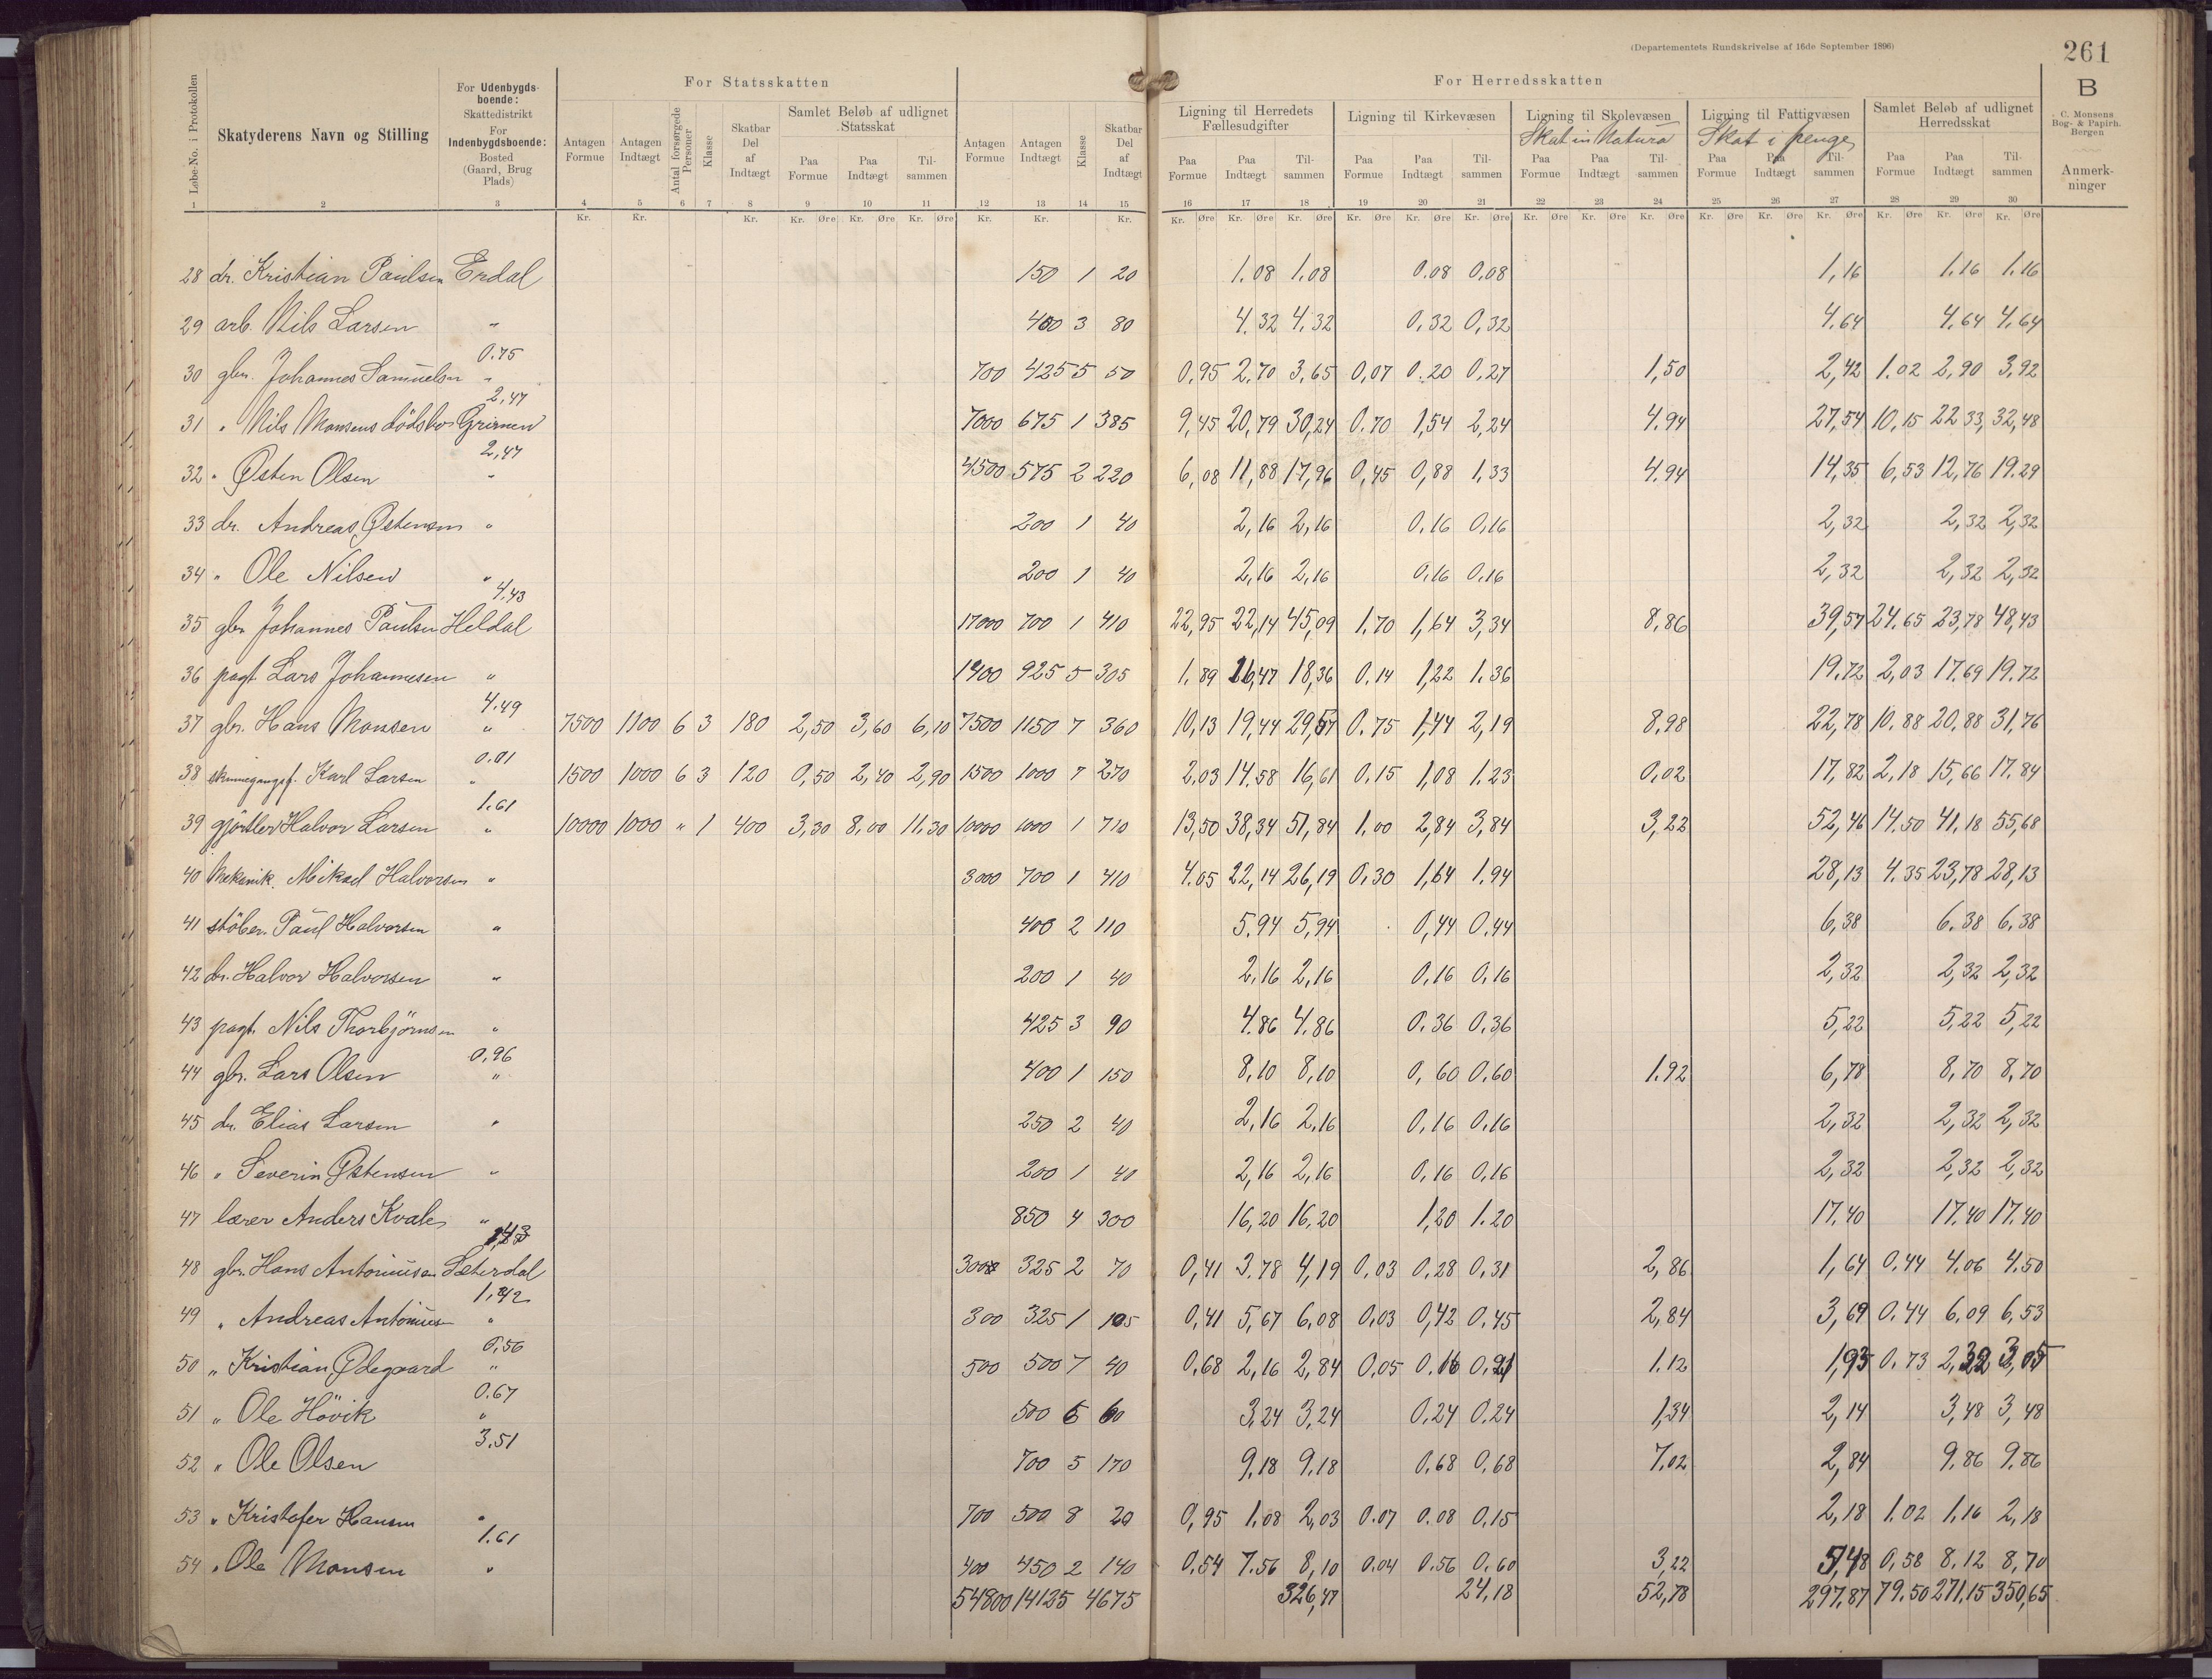 (Departementets Rundskrivelse af 16de September 1896)
261
B
C. Monsens Bog- & Papirh. Bergen
Anmerkninger
For Statsskatten
For Herredsskatten
Løbe-No. i Protokollen
Skatyderens Navn og Stilling
For Udenbygdsboende: Skattedistrikt For Indenbygdsboende: Bosted (Gaard, Brug Plads)
Antagen Formue Antagen Indtægt Antal forsørgede Personer Klasse Skatbar Del af Indtægt
Samlet Beløb af udlignet Statsskat
Paa Formue Paa Indtægt Tilsammen
Antagen Formue Antagen Indtægt Klasse Skatbar Del af Indtægt
Ligning til Herredets Fællesudgifter
Paa Formue Paa Indtægt Tilsammen
Ligning til Kirkevæsen
Paa Formue Paa Indtægt Tilsammen
Ligning til Skolevæsen
Skat in Natura
Paa Formue Paa Indtægt Tilsammen
Ligning til Fattigvæsen
Skat i penge
Paa Formue Paa Indtægt Tilsammen
Samlet Beløb af udlignet Herredsskat
Paa Formue Paa Indtægt Tilsammen
1 2 3 4 5 6 7 8 9 10 11 12 13 14 15 16 17 18 19 20 21 22 23 24 25 26 27 28 29 30
Kr. Kr. Kr. Kr. Øre Kr. Øre Kr. Øre Kr. Kr. Kr. Kr. Øre Kr. Øre Kr. Øre Kr. Øre Kr. Øre Kr. Øre Kr. Øre Kr. Øre Kr. Øre Kr. Øre Kr. Øre Kr. Øre Kr. Øre Kr. Øre Kr. Øre
28 dr. Kristian Paulsen Erdal 150 1 20 1.08 1.08 0.08 0.08 1,16 1.16 1.16
29 arb. Nils Larsen " 400 3 80 4.32 4.32 0,32 0,32 4.64 4.64 4.64
0.75
30 gbr. Johannes Samuelsen " 700 425 5 50 0,95 2,70 3,65 0,07 0.20 0,27 1,50 2,42 1.02 2,90 3,92
2,47
31 " Nils Monsens dödsbo Grimen 7000 675 1 385 9,45 20,79 30,24 0.70 1,54 2,24 4.94 27,54 10,15 22 33, 32,48
2,47
32 " Østen Olsen " 4500 575 2 220 6,08 11,88 17,96 0,45 0,88 1,33 4.94 14,35 6,53 12,76 19.29
33 dr. Andreas Østensen " 200 1 40 2,16 2,16 0.16 0,16 2,32 2,32 2,32
34 " Ole Nilsen " 200 1 40 2,16 2,16 0,16 0.16 2,32 2,32 2,32
4.43
35 gbr Johannes Paulsen Heldal 17000 700 1 410 22,95 22,14 45,09 1.70 1,64 3,34 8.86 39,57 24.65 23,78 48,43
36 pagt. Lars Johannesen " 1400 925 5 305 1.89 16,47 18,36 0.14 1,22 1.36 19.72 2,03 17.69 19.72
4.49
37 gbr. Hans Monsen " 7500 1100 6 3 180 2,50 3,60 6,10 7500 1150 7 360 10,13 19,44 29,57 0.75 1,44 2,19 8,98 22,78 10.88 20,88 31,76
0.01
38 Karl Larsen " 1500 1000 6 3 120 0,50 2,40 2,90 1500 1000 7 270 2,03 14,58 16,61 0.15 1,08 1.23 0,02 17,82 2,18 15,66 17.84
1.61
39 gjörtler Halvor Larsen " 10000 1000 " 1 400 3,30 8,00 11.30 10000 1000 1 710 13,50 38,34 51,84 1.00 2,84 3,84 3,22 52,46 14.50 41,18 55,68
40 Mekanik. Mikael Halvorsen " 3000 700 1 410 4.05 22,14 26,19 0,30 1,64 1.94 28,13 4.35 23,78 28,13
41 stöber. Paul Halvorsen " 400 2 110 5.94 5,94 0,44 0.44 6,38 6.38 6.38
42 dr. Halvor Halvorsen " 200 1 40 2,16 2,16 0.16 0,16 2,32 2,32 2,32
43 pagt. Nils Thorbjörnsen " 425 3 90 4.86 4.86 0.36 0.36 5,22 5,22 5,22
0,96
44 gbr. Lars Olsen " 400 1 150 8,10 8,10 0,60 0.60 1.92 6,78 8,70 8,70
45 dr. Elias Larsen " 250 2 40 2,16 2,16 0,16 0.16 2,32 2,32 2,32
46 " Severin Østensen " 200 1 40 2,16 2,16 0,16 0,16 2,32 2,32 2,32
47 lærer Anders Kvale " 850 4 300 16,20 16,20 1,20 1.20 17,40 17,40 17,40
1,43
48 gbr. Hans Antoniusen Sæterdal 300 325 2 70 0,41 3.78 4,19 0.03 0,28 0,31 2,86 1,64 0.44 4.06 4.50
1,42
49 " Andreas Antoniusen " 300 325 1 105 0,41 5,67 6,08 0,03 0,42 0,45 2,84 3,69 0.44 6,09 6,53
0,56
50 " Kristian Ødegaard " 500 500 7 40 0,68 2,16 2,84 0,05 0.16 0,21 1.12 1,93 0.73 2,32 3,05
0.67
51 " Ole Hövik " 500 6 60 3,24 3,24 0,24 0.24 1,34 2,14 3,48 3,48
3.51
52 " Ole Olsen 700 5 170 9,18 9,18 0.68 0,68 7.02 2,84 9.86 9.86
53 " Kristofer Hansen " 700 500 8 20 0,95 1.08 2,03 0.07 0.08 0,15 2,18 1.02 1,16 2,18
1.61
54 " Ole Monsen " 400 450 2 140 0.54 7.56 8,10 0.04 0.56 0.60 3,22 5,48 0,58 8,12 8,70
54800 14125 4675 326,47 24,18 52,78 297.87 79.50 271.15 350,65